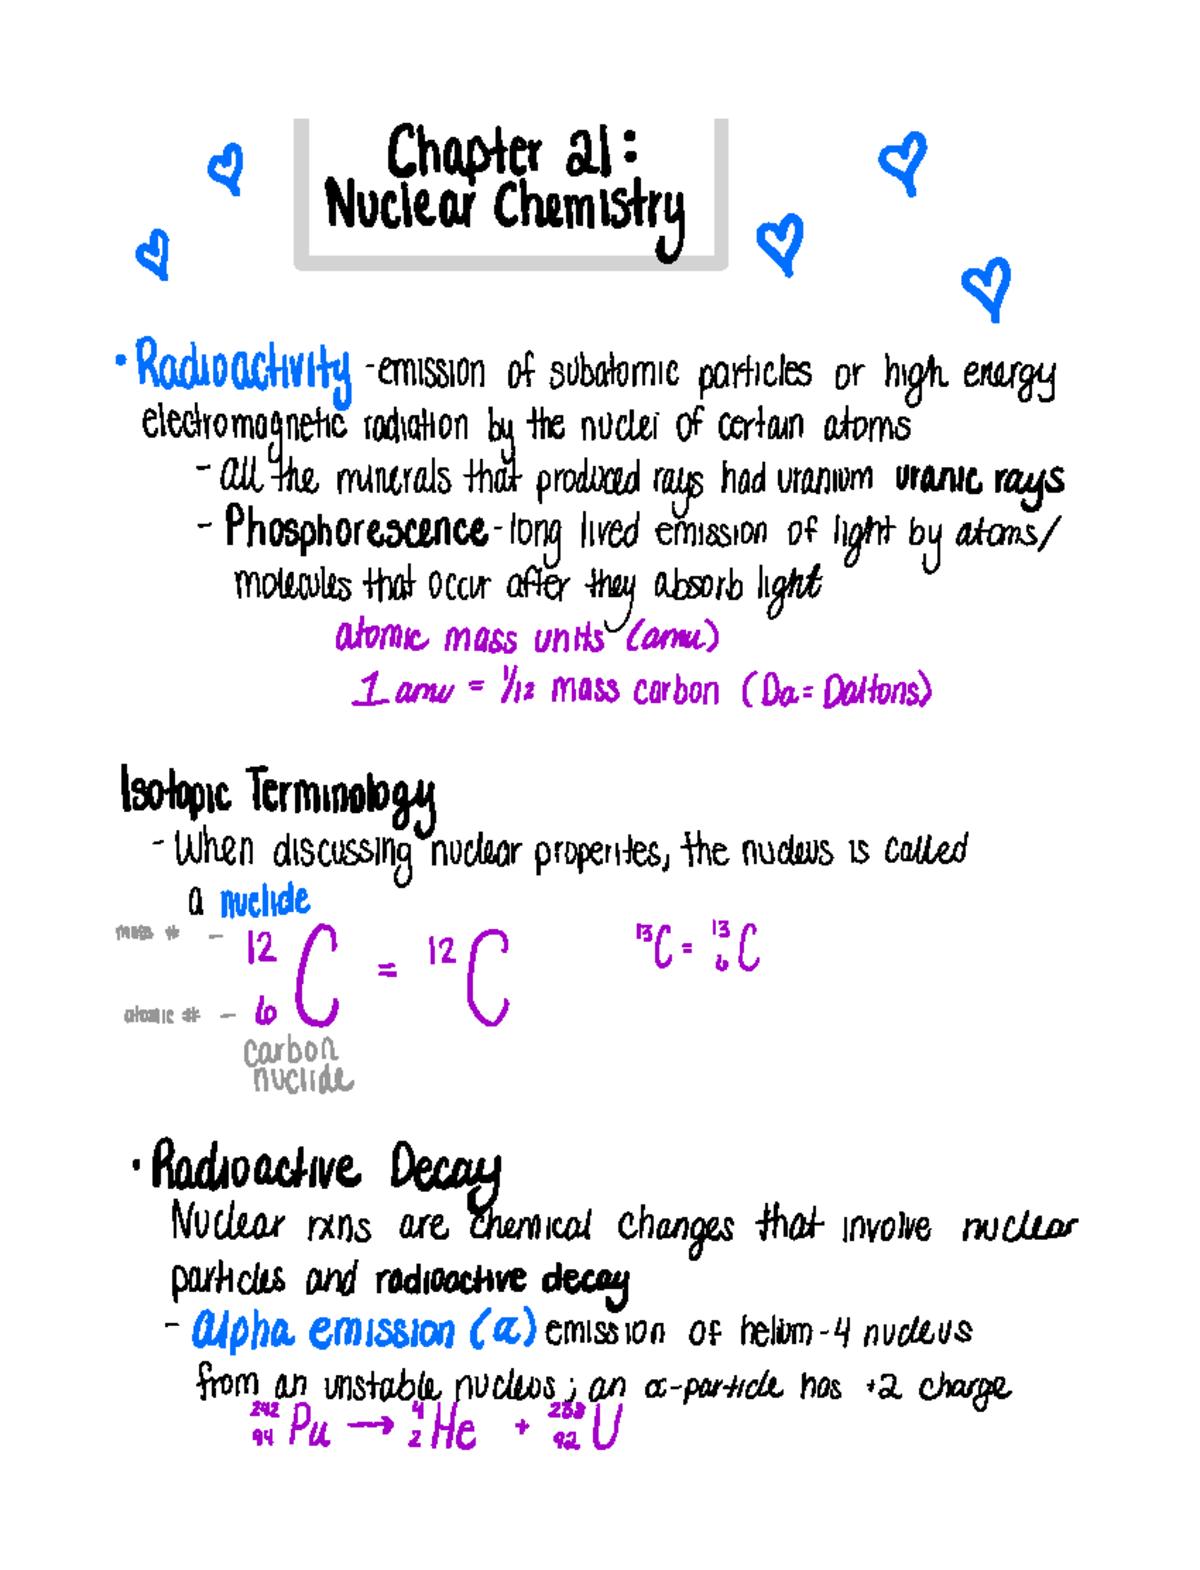 Chapter 21:
Nuclear Chemistry
• Radioactivity - emission of subatomic particles or high energy
electromagnetic radiation by the nuclei of certain atoms
- all the minerals that produced rays had uranium uranic rays
- Phosphorescence - long lived emission of light by atoms/
molecules that occur after they absorb light
atomic mass units (amu)
1 amu = 1/12 mass carbon (Da = Daltons)
Isotopic Terminology
- When discussing nuclear properites, the nucleus is called
a nuclide
mass # - ¹²₆C = ¹²C ¹³C = ¹³₆C
atomic # -
carbon
nuclide
• Radioactive Decay
Nuclear rxns are chemical changes that involve nuclear
particles and radioactive decay
- Alpha emission (α) emission of helium-4 nucleus
from an unstable nucleus ; an α-particle has +2 charge
²⁴²₉₄Pu → ⁴₂He + ²³⁸₉₂U